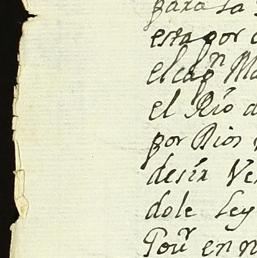 para la
esta por
el cap.n Ma
el Rio d
por Dios
desir Ve
dole Ley
Por en n